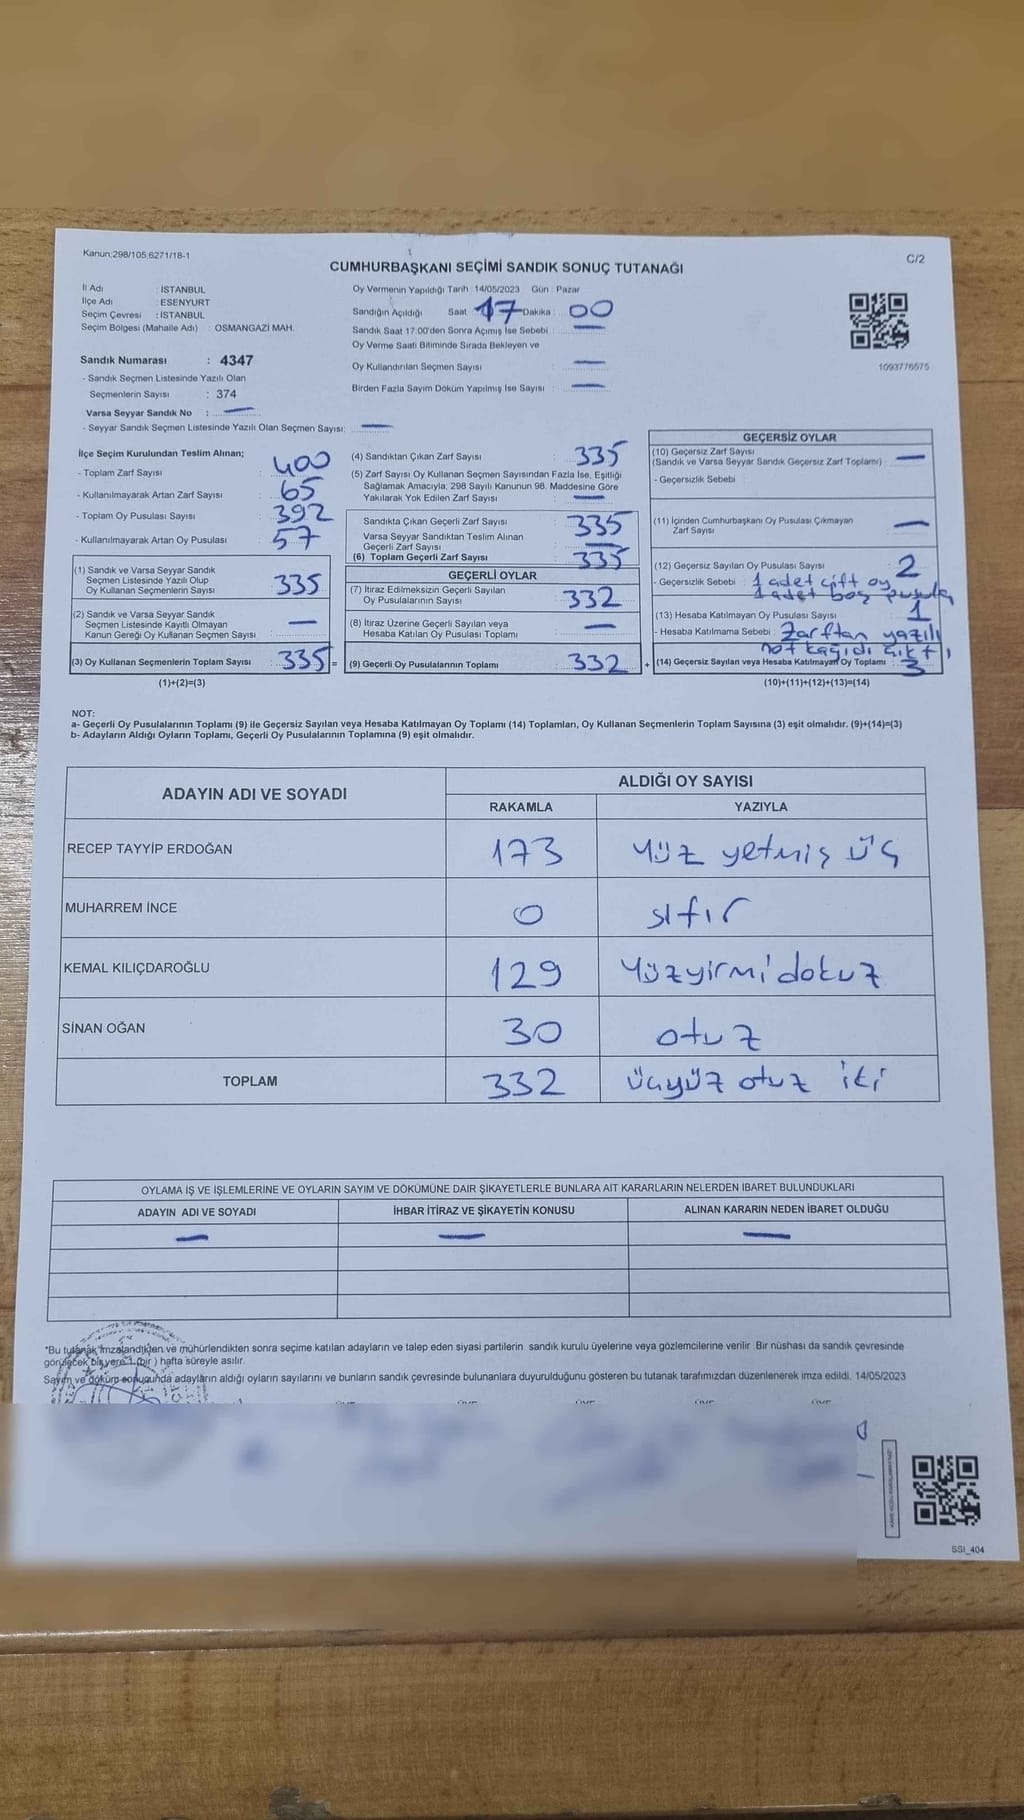 Kanun;298/105;6271/18-1
C/2
CUMHURBAŞKANI SEÇİMİ SANDIK SONUÇ TUTANAĞI
İl Adı : İSTANBUL
İlçe Adı : ESENYURT
Seçim Çevresi : İSTANBUL
Seçim Bölgesi (Mahalle Adı) : OSMANGAZİ MAH.
Sandık Numarası : 4347
- Sandık Seçmen Listesinde Yazılı Olan
Seçmenlerin Sayısı : 374
Varsa Seyyar Sandık No : —
- Seyyar Sandık Seçmen Listesinde Yazılı Olan Seçmen Sayısı: —
Oy Vermenin Yapıldığı Tarih : 14/05/2023 Gün : Pazar
Sandığın Açıldığı Saat 17 Dakika : 00
Sandık Saat 17:00'den Sonra Açımış İse Sebebi : —
Oy Verme Saati Bitiminde Sırada Bekleyen ve
Oy Kullandırılan Seçmen Sayısı : —
Birden Fazla Sayım Döküm Yapılmış İse Sayısı : —
1093776575
İlçe Seçim Kurulundan Teslim Alınan;
- Toplam Zarf Sayısı : 400
- Kullanılmayarak Artan Zarf Sayısı : 65
- Toplam Oy Pusulası Sayısı : 392
- Kullanılmayarak Artan Oy Pusulası : 57
(1) Sandık ve Varsa Seyyar Sandık
Seçmen Listesinde Yazılı Olup
Oy Kullanan Seçmenlerin Sayısı : 335
(2) Sandık ve Varsa Seyyar Sandık
Seçmen Listesinde Kayıtlı Olmayan
Kanun Gereği Oy Kullanan Seçmen Sayısı : —
(3) Oy Kullanan Seçmenlerin Toplam Sayısı : 335 =
(1)+(2)=(3)
(4) Sandıktan Çıkan Zarf Sayısı : 335
(5) Zarf Sayısı Oy Kullanan Seçmen Sayısından Fazla İse, Eşitliği
Sağlamak Amacıyla; 298 Sayılı Kanunun 98. Maddesine Göre
Yakılarak Yok Edilen Zarf Sayısı : —
Sandıkta Çıkan Geçerli Zarf Sayısı : 335
Varsa Seyyar Sandıktan Teslim Alınan
Geçerli Zarf Sayısı : —
(6) Toplam Geçerli Zarf Sayısı : 335
GEÇERLİ OYLAR
(7) İtiraz Edilmeksizin Geçerli Sayılan
Oy Pusulalarının Sayısı : 332
(8) İtiraz Üzerine Geçerli Sayılan veya
Hesaba Katılan Oy Pusulası Toplamı : —
(9) Geçerli Oy Pusulalarının Toplamı : 332 +
GEÇERSİZ OYLAR
(10) Geçersiz Zarf Sayısı
(Sandık ve Varsa Seyyar Sandık Geçersiz Zarf Toplamı) : —
- Geçersizlik Sebebi :
(11) İçinden Cumhurbaşkanı Oy Pusulası Çıkmayan
Zarf Sayısı : —
(12) Geçersiz Sayılan Oy Pusulası Sayısı : 2
- Geçersizlik Sebebi : 1 adet çift oy
1 adet boş pusula
(13) Hesaba Katılmayan Oy Pusulası Sayısı : 1
- Hesaba Katılmama Sebebi : Zarftan yazılı
not kağıdı çıktı
(14) Geçersiz Sayılan veya Hesaba Katılmayan Oy Toplamı : 3
(10)+(11)+(12)+(13)=(14)
NOT:
a- Geçerli Oy Pusulalarının Toplamı (9) ile Geçersiz Sayılan veya Hesaba Katılmayan Oy Toplamı (14) Toplamları, Oy Kullanan Seçmenlerin Toplam Sayısına (3) eşit olmalıdır. (9)+(14)=(3)
b- Adayların Aldığı Oyların Toplamı, Geçerli Oy Pusulalarının Toplamına (9) eşit olmalıdır.
ADAYIN ADI VE SOYADI ALDIĞI OY SAYISI
RAKAMLA YAZIYLA
RECEP TAYYİP ERDOĞAN 173 Yüz yetmiş üç
MUHARREM İNCE 0 sıfır
KEMAL KILIÇDAROĞLU 129 Yüzyirmi dokuz
SİNAN OĞAN 30 otuz
TOPLAM 332 üçyüz otuz iki
OYLAMA İŞ VE İŞLEMLERİNE VE OYLARIN SAYIM VE DÖKÜMÜNE DAİR ŞİKAYETLERLE BUNLARA AİT KARARLARIN NELERDEN İBARET BULUNDUKLARI
ADAYIN ADI VE SOYADI İHBAR İTİRAZ VE ŞİKAYETİN KONUSU ALINAN KARARIN NEDEN İBARET OLDUĞU
— — —
*Bu tutanak imzalandıkten ve mühürlendikten sonra seçime katılan adayların ve talep eden siyasi partilerin sandık kurulu üyelerine veya gözlemcilerine verilir. Bir nüshası da sandık çevresinde
görülecek bir yere 1 (bir) hafta süreyle asılır.
Sayım ve döküm sonucunda adayların aldığı oyların sayılarını ve bunların sandık çevresinde bulunanlara duyurulduğunu gösteren bu tutanak tarafımızdan düzenlenerek imza edildi. 14/05/2023
SSI_404